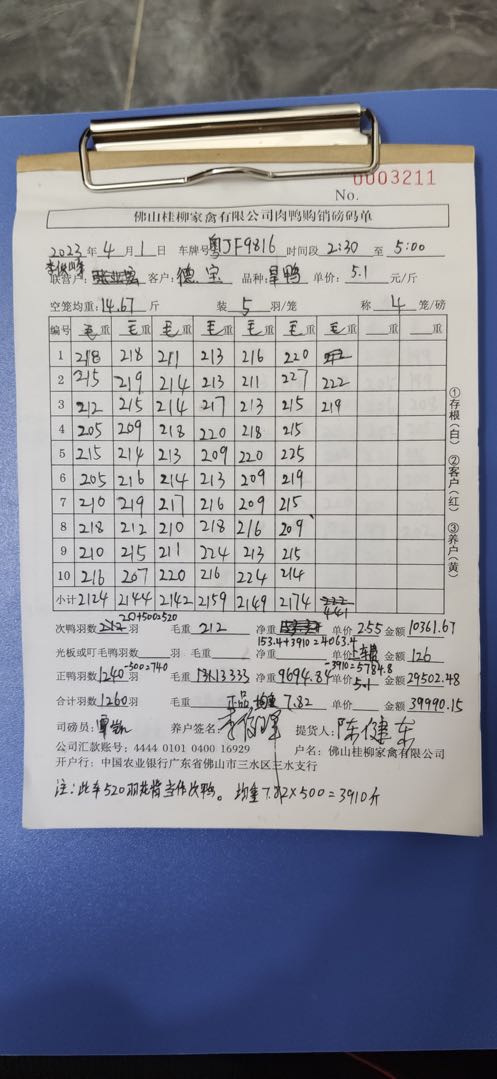 No. 0003211
佛山桂柳家禽有限公司肉鸭购销磅码单
2023年4月1日 车牌号粤JF9816 时间段2:30至5:00
联营户: 客户:德宝 品种: 单价:5.1元/斤
空笼均重:14.67斤 装5羽/笼 称4笼/磅
编号 毛重 毛重 毛重 毛重 毛重 毛重 毛重 重 重
1 218 218 211 213 216 220
2 215 219 214 213 211 227 222
3 212 215 214 217 213 215 219
4 205 209 218 220 218 215
5 215 214 213 209 220 225
6 205 216 214 213 209 219
7 210 219 217 216 209 215
8 218 212 210 218 216 209
9 210 215 211 224 213 215
10 216 207 220 216 224 214
小计 2124 2144 2142 2159 2149 2174 441
①存根(白) ②客户(红) ③养户(黄)
20+500=520
次鸭羽数 羽 毛重212 净重 单价2.55 金额10361.67
153.4+3910=4063.4
光板或叮毛鸭羽数 羽 毛重 净重 单价 金额126
-500=740 -3910=5784.8
正鸭羽数1240羽 毛重13333 净重9694.84 单价5.1 金额29502.48
合计羽数1260羽 毛重 正品均重7.82 单价 金额39990.15
司磅员: 养户签名: 提货人:陈健东
公司汇款账号:4444 0101 0400 16929 户名:佛山桂柳家禽有限公司
开户行:中国农业银行广东省佛山市三水区三水支行
注:此车520羽 当作次鸭。均重7.82×500=3910斤